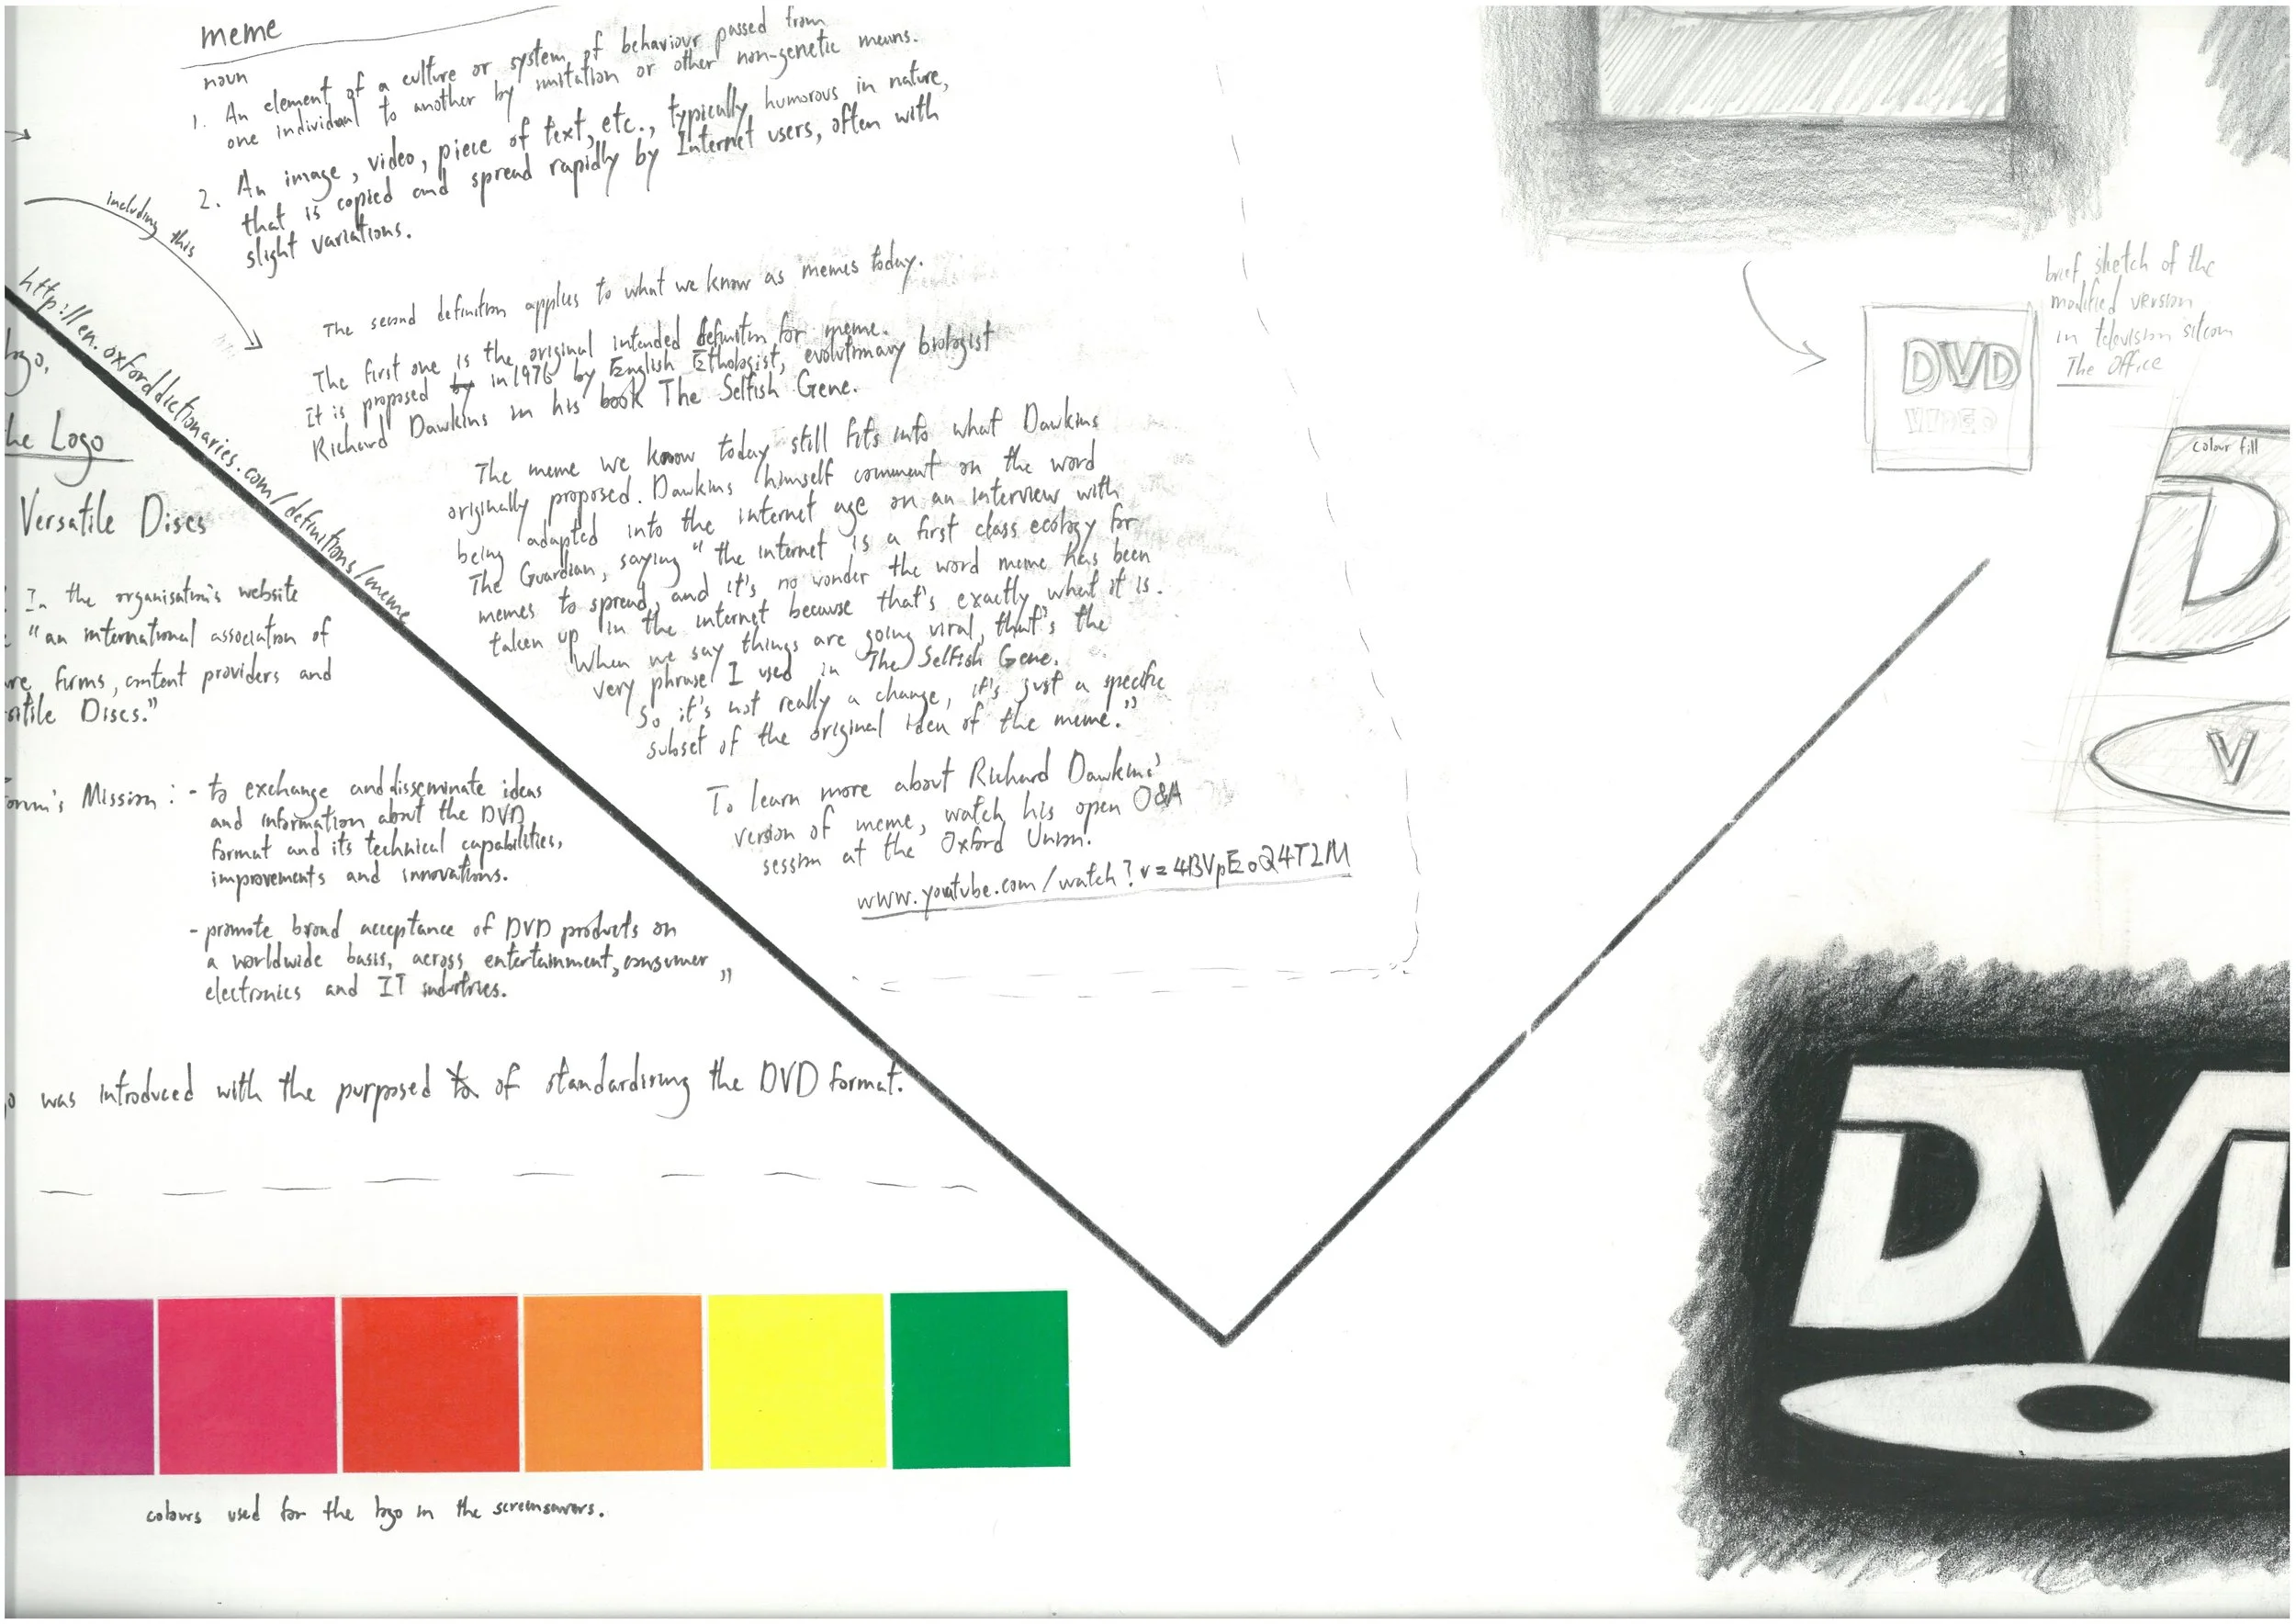 meme
noun
1. An element of a culture or system of behaviour passed from
one individual to another by imitation or other non-genetic means.
2. An image, video, piece of text, etc., typically humorous in nature,
that is copied and spread rapidly by Internet users, often with
slight variations.
including this
http://en.oxforddictionaries.com/definitions/meme
The second definition applies to what we know as memes today.
The first one is the original intended definition for meme.
It is proposed by in 1976 by English Ethologist, evolutionary biologist
Richard Dawkins in his book The Selfish Gene.
The meme we know today still fits into what Dawkins
originally proposed. Dawkins himself comment on the word
being adapted into the internet age on an interview with
The Guardian, saying "the internet is a first class ecology for
memes to spread, and it's no wonder the word meme has been
taken up in the internet because that's exactly what it is.
When we say things are going viral, that's the
very phrase I used in The Selfish Gene.
So it's not really a change, it's just a specific
subset of the original idea of the meme."
To learn more about Richard Dawkins'
version of meme, watch his open Q&A
session at the Oxford Union.
www.youtube.com/watch?v=4BVpEoQ4T2M
ogo,
he Logo
Versatile Discs
In the organisation's website
"an international association of
are firms, content providers and
satile Discs."
orum's Mission: - to exchange and disseminate ideas
and information about the DVD
format and its technical capabilities,
improvements and innovations.
- promote broad acceptance of DVD products on
a worldwide basis, across entertainment, consumer
electronics and IT industries. "
o was introduced with the purposed to of standardising the DVD format.
colours used for the logo in the screensavers.
brief sketch of the
modified version
in television sitcom
The Office
DVD
VIDEO
colour fill
D
V
DVD